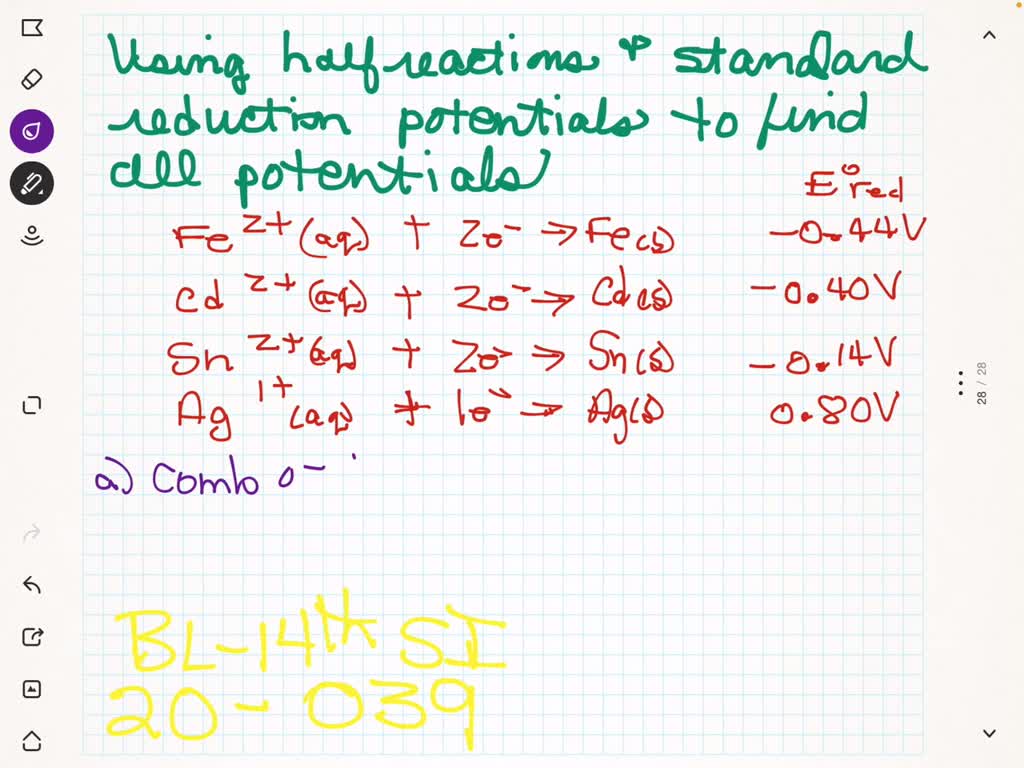 Using half reactions & standard
reduction potentials to find
all potentials
E°red
Fe 2+ (aq) + 2e- → Fe(s) -0.44V
Cd 2+ (aq) + 2e- → Cd(s) -0.40V
Sn 2+ (aq) + 2e- → Sn(s) -0.14V
Ag 1+ (aq) + 1e- → Ag(s) 0.80V
a) Combo e-
BL-14th SI
20-039
28 / 28